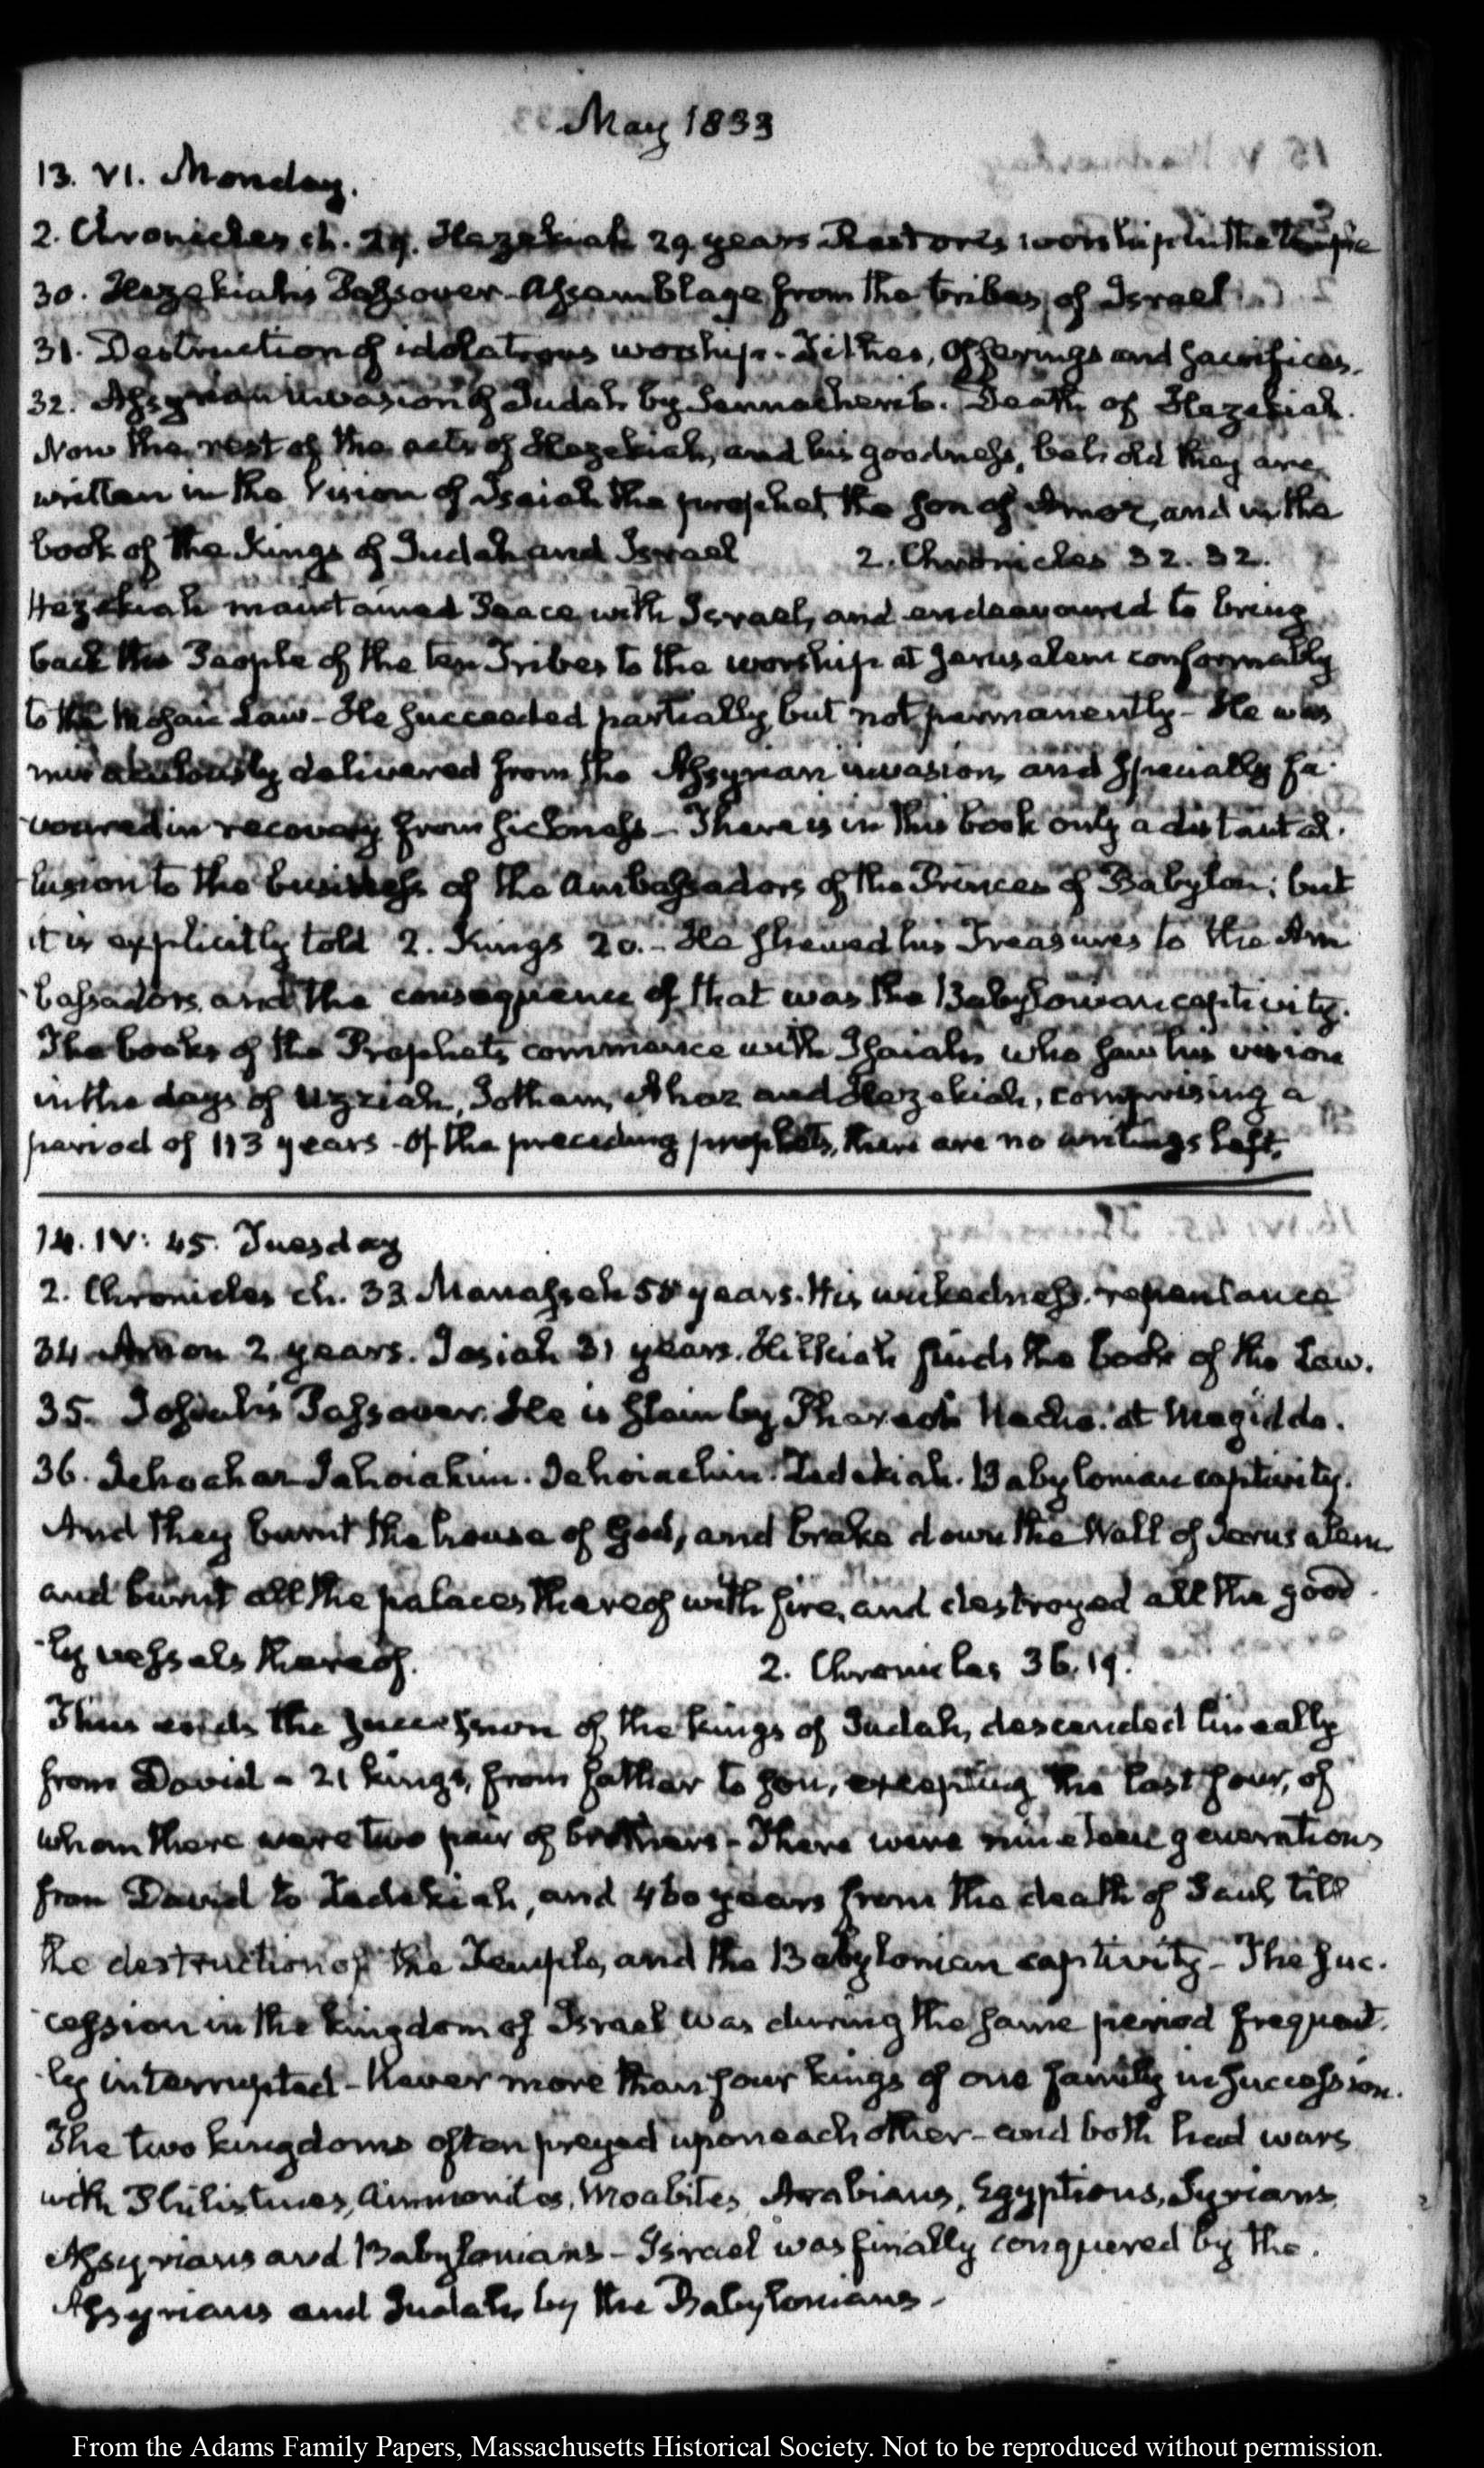 May 1833
13. VI. Monday.
2. Chronicles ch. 29. Hezekiah 29 years Restores worship in the temple
30. Hezekiah's Passover. Assemblage from the tribes of Israel
31. Destruction of idolatrous worship. Tithes, Offerings and sacrifices.
32. Assyrian invasion of Judah by Sennacherib. Death of Hezekiah.
Now the rest of the acts of Hezekiah, and his goodness, behold they are
written in the Vision of Isaiah the prophet, the son of Amoz, and in the
book of the Kings of Judah and Israel 2. Chronicles 32. 32.
Hezekiah maintained Peace with Israel, and endeavoured to bring
back the People of the ten Tribes to the worship at Jerusalem conformably
to the Mosaic Law - He succeeded partially, but not permanently - He was
miraculously delivered from the Assyrian invasion, and specially fa-
-voured in recovery from sickness - There is in this book only a distant al-
-lusion to the business of the Ambassadors of the Princes of Babylon; but
it is explicitly told 2. Kings 20. - He shewed his Treasures to the Am
-bassadors, and the consequence of that was the Babylonian captivity.
The books of the Prophets commence with Isaiah, who saw his vision
in the days of Uzziah, Jotham, Ahaz and Hezekiah, comprising a
period of 113 years - Of the preceding prophets, there are no writings left.
14. IV: 45. Tuesday
2. Chronicles ch. 33. Manasseh 55 years. His wickedness. repentance
34 Amon 2 years. Josiah 31 years. Hilkiah finds the book of the Law.
35. Josiah's Passover. He is slain by Pharaoh Necho. at Megiddo.
36. Jehoahaz Jehoiakim. Jehoiachin. Zedekiah. Babylonian captivity.
And they burnt the house of God, and brake down the Wall of Jerusalem
and burnt all the palaces thereof with fire, and destroyed all the good-
-ly vessels thereof. 2. Chronicles 36. 19.
Thus ends the succession of the kings of Judah, descended lineally
from David - 21 kings, from father to son, excepting the last four, of
whom there were two pair of brothers - There were nineteen generations
from David to Zedekiah, and 460 years from the death of Saul, till
the destruction of the Temple, and the Babylonian captivity - The suc-
-cession in the kingdom of Israel was during the same period frequent-
-ly interrupted - Never more than four kings of one family in succession.
The two kingdoms often preyed upon each other - and both had wars
with Philistines, Ammonites, Moabites, Arabians, Egyptians, Syrians
Assyrians and Babylonians - Israel was finally conquered by the
Assyrians and Judah, by the Babylonians -
From the Adams Family Papers, Massachusetts Historical Society. Not to be reproduced without permission.